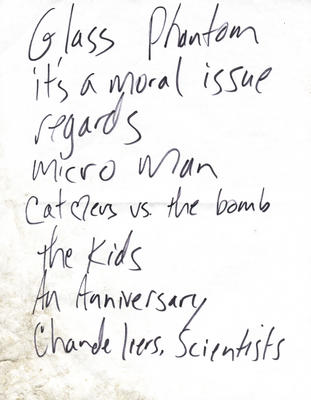 Glass Phantom
it's a moral issue
regards
Micro Man
Cat Mews vs. the bomb
the Kids
An Anniversary
Chandeliers, Scientists